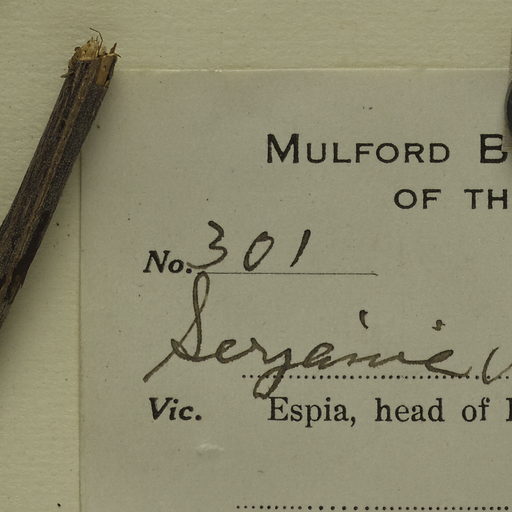 MULFORD B
OF TH
No. 301
Serjania
Vic. Espia, head of